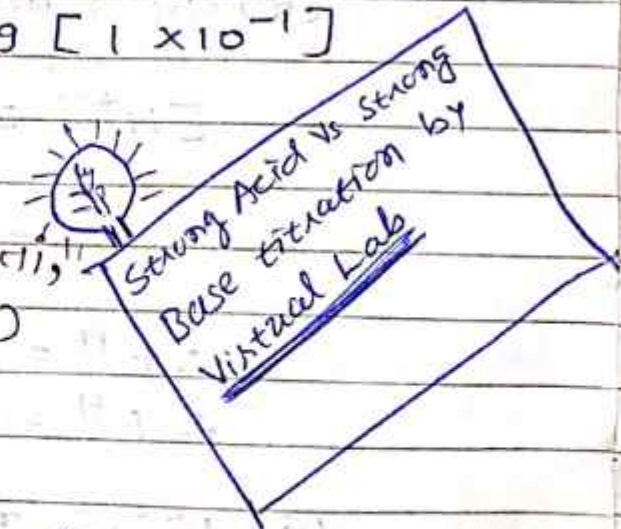 g [ 1 × 10⁻¹ ]
Strong Acid Vs Strong
Base titration by
Virtual Lab